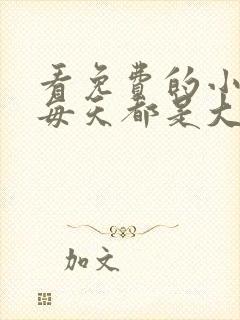 看免费的小
每天都是大
加文